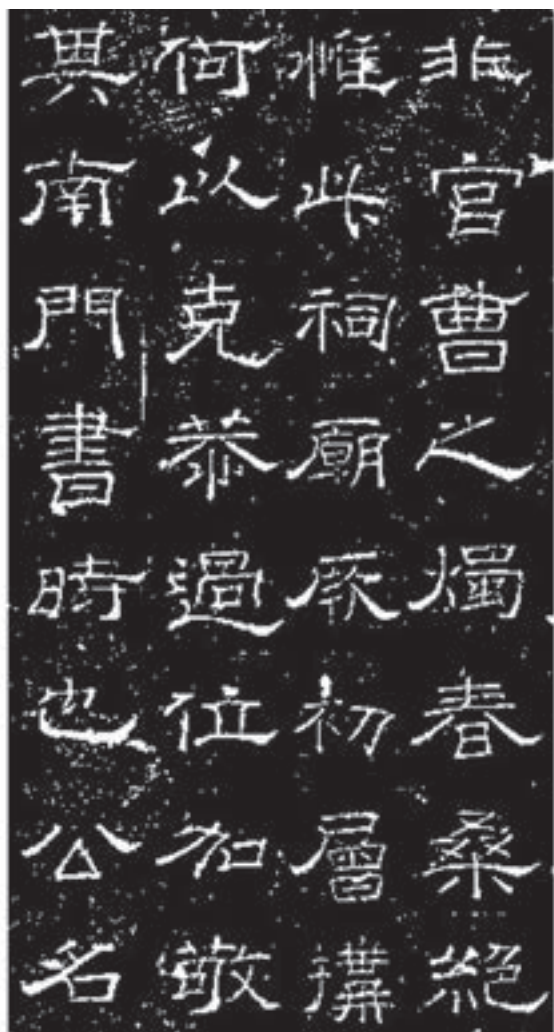 非官曹之燭春桑絕
惟此祠廟厥初層搆
何以克恭過位加敬
異南門書時也公名